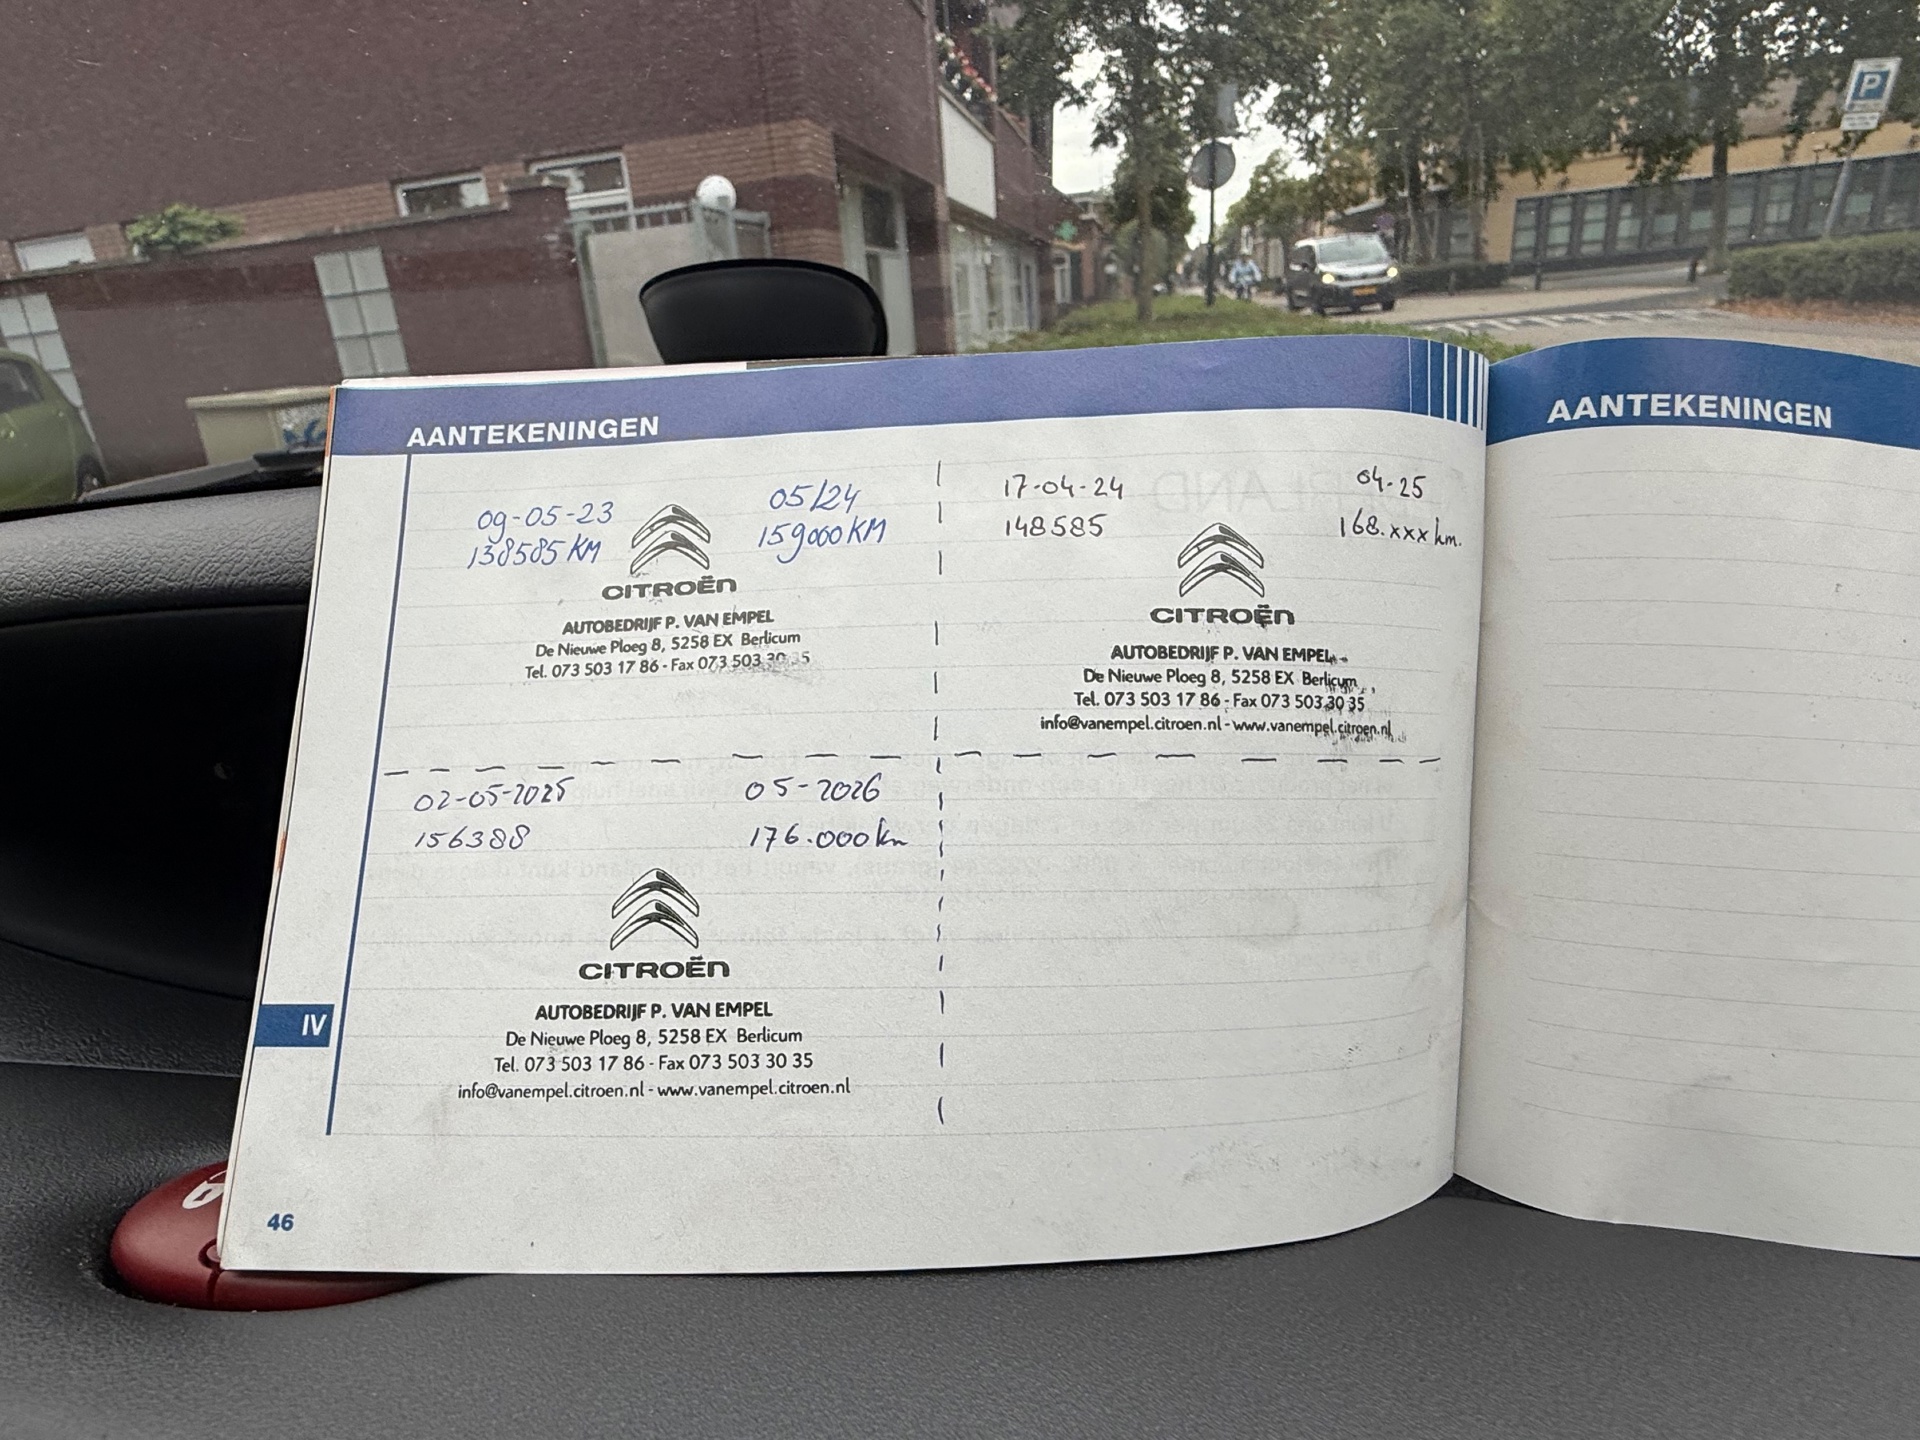 P
AANTEKENINGEN
09-05-23
138585 KM
05/24
159000 KM
CITROËN
AUTOBEDRIJF P. VAN EMPEL
De Nieuwe Ploeg 8, 5258 EX Berlicum
Tel. 073 503 17 86 - Fax 073 503 30 35
17-04-24
148585
04-25
168.xxx km.
CITROËN
AUTOBEDRIJF P. VAN EMPEL
De Nieuwe Ploeg 8, 5258 EX Berlicum
Tel. 073 503 17 86 - Fax 073 503 30 35
info@vanempel.citroen.nl - www.vanempel.citroen.nl
02-05-2025
156388
05-2026
176.000 km
CITROËN
AUTOBEDRIJF P. VAN EMPEL
De Nieuwe Ploeg 8, 5258 EX Berlicum
Tel. 073 503 17 86 - Fax 073 503 30 35
info@vanempel.citroen.nl - www.vanempel.citroen.nl
IV
46
AANTEKENINGEN